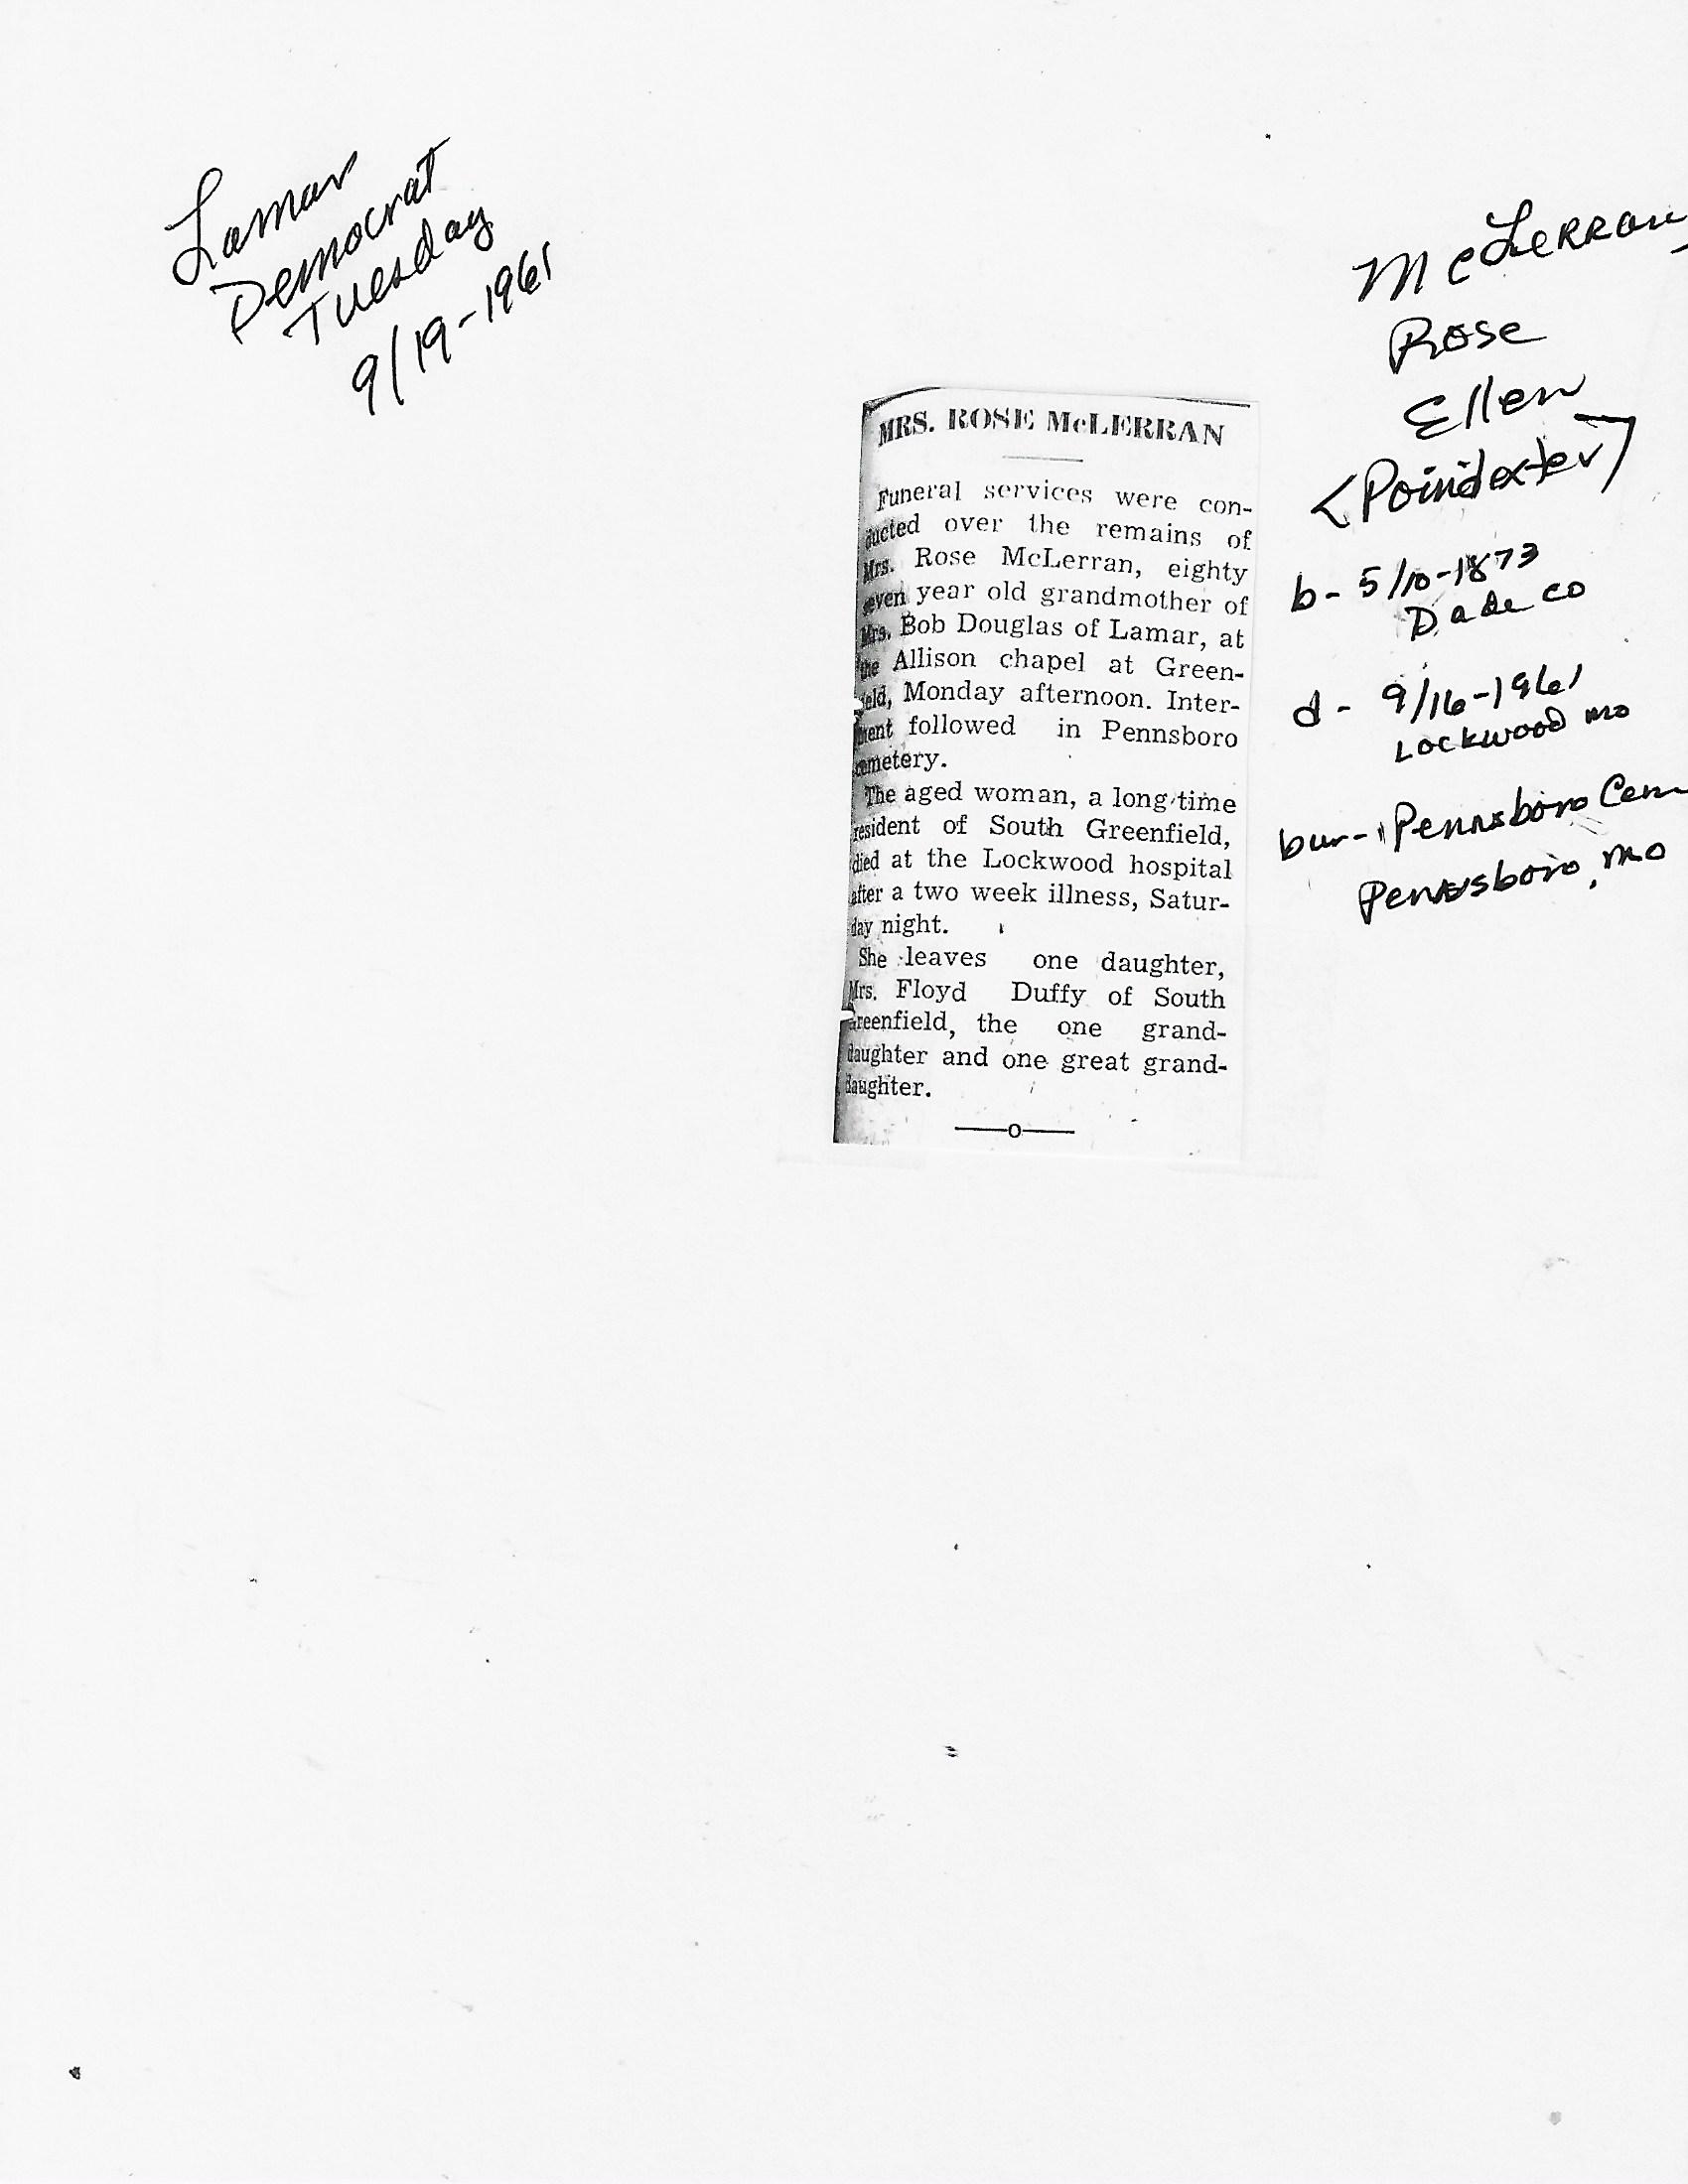 Lamar
Democrat
Tuesday
9/19-1961
McLerran,
Rose
Ellen
<Poindexter>
b- 5/10-1873
Dade Co
d- 9/16-1961
Lockwood Mo
bur- Pennsboro Cem
Pennsboro, Mo
MRS. ROSE McLERRAN
Funeral services were con-
ducted over the remains of
Mrs. Rose McLerran, eighty
seven year old grandmother of
Mrs. Bob Douglas of Lamar, at
the Allison chapel at Green-
field, Monday afternoon. Inter-
ment followed in Pennsboro
cemetery.
The aged woman, a long time
resident of South Greenfield,
died at the Lockwood hospital
after a two week illness, Satur-
day night.
She leaves one daughter,
Mrs. Floyd Duffy of South
Greenfield, the one grand-
daughter and one great grand-
daughter.